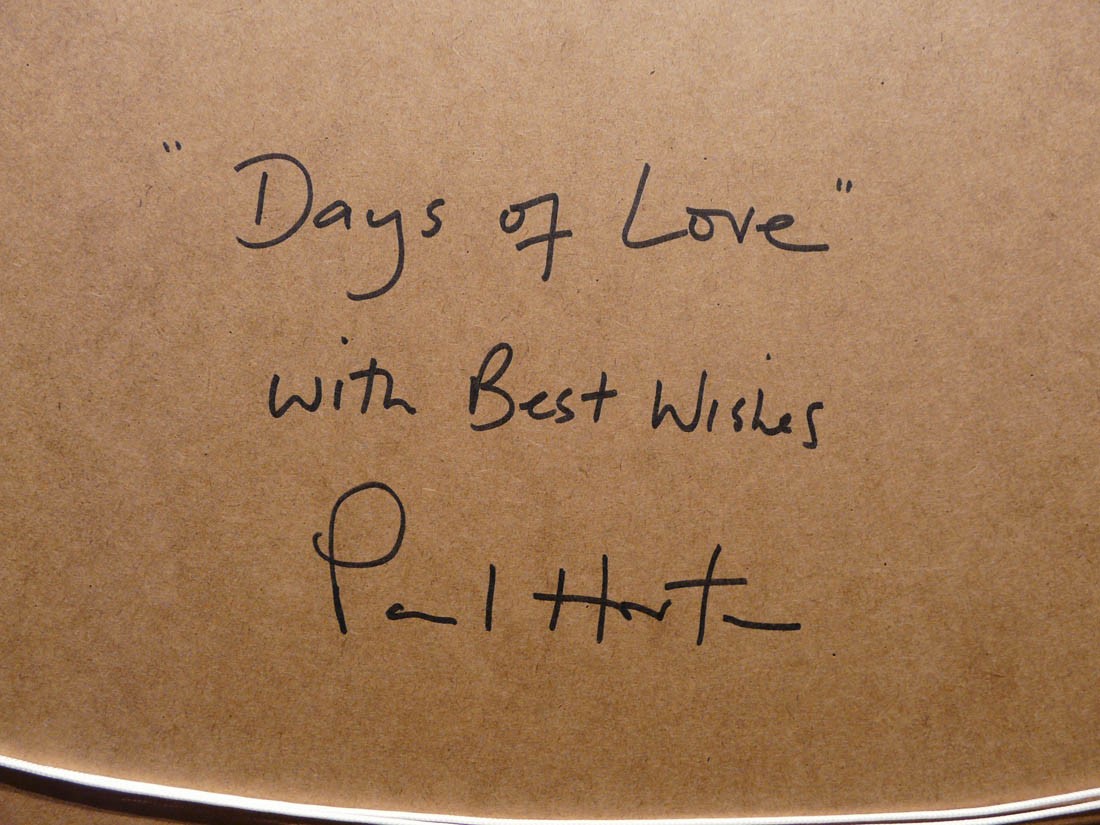 "Days of Love"
with Best Wishes
Paul Horton